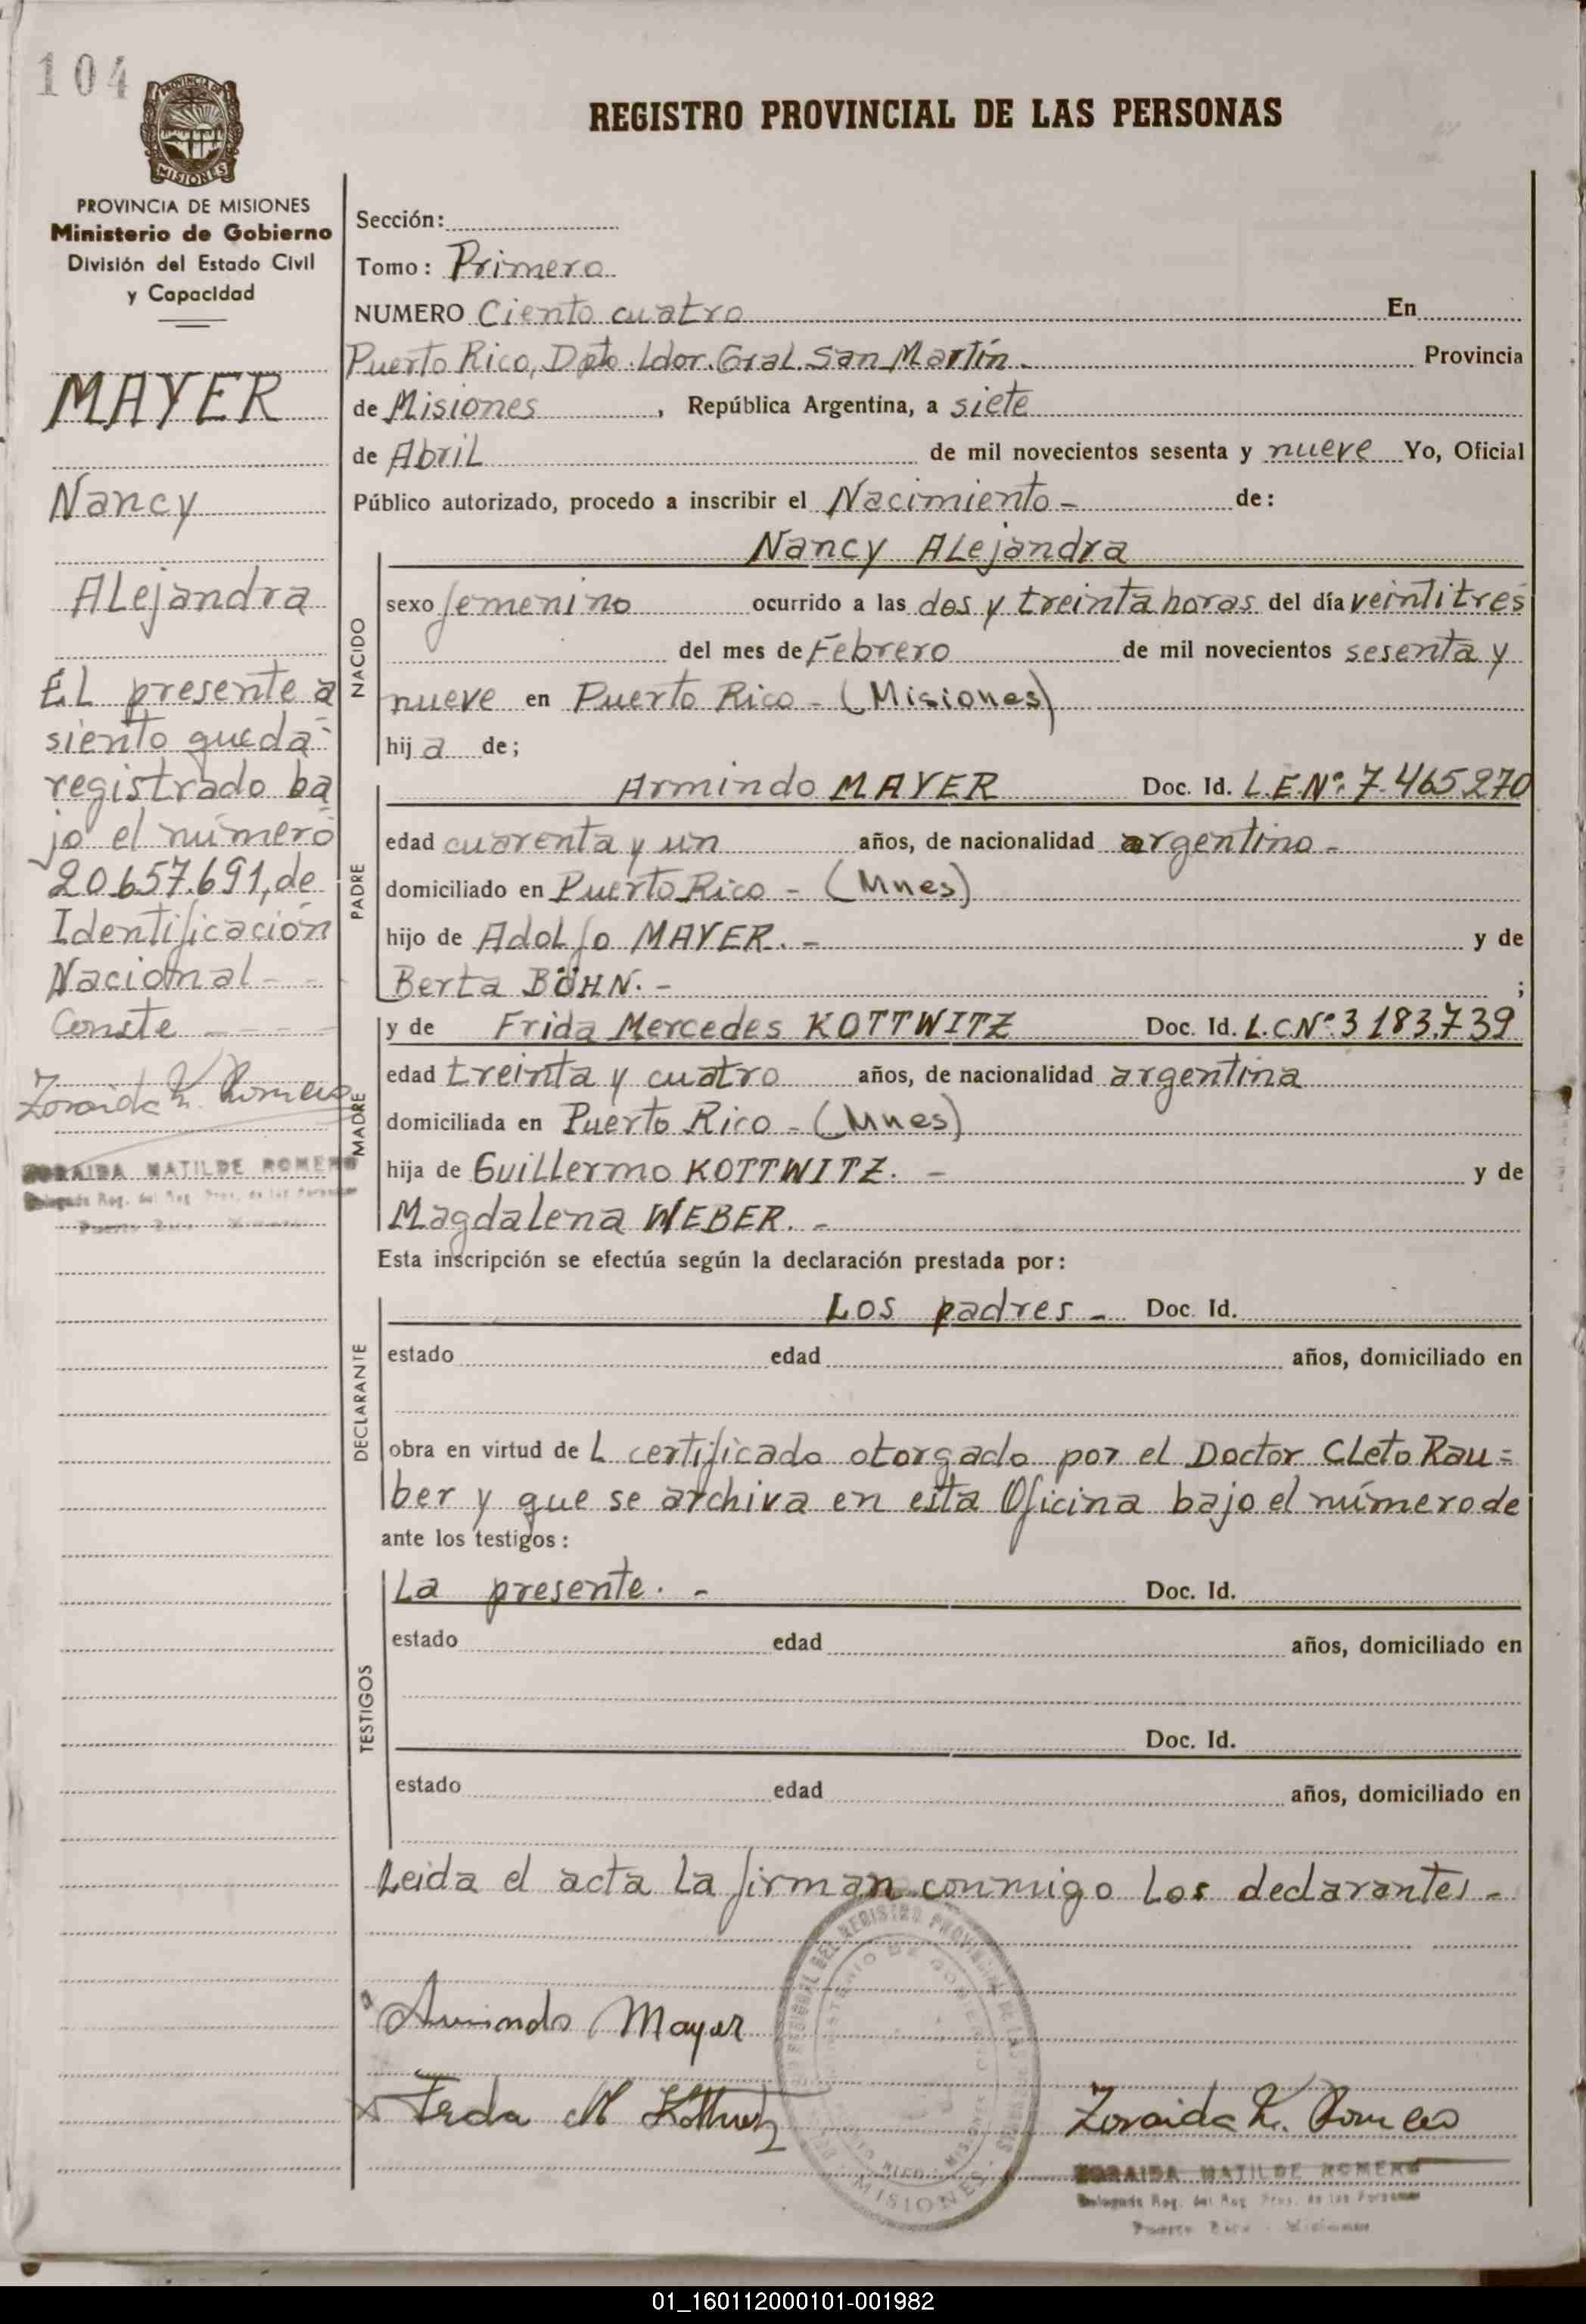 104
PROVINCIA DE
MISIONES
REGISTRO PROVINCIAL DE LAS PERSONAS
PROVINCIA DE MISIONES
Ministerio de Gobierno
División del Estado Civil
y Capacidad
MAYER
Nancy
ALejandra
EL presente a
siento queda-
registrado ba
jo el número
20.657.691, de
Identificación
Nacional - -
Conste - - - -
Zoraida M. Romero
ZORAIDA MATILDE ROMERO
Delegada Reg. del Reg. Prov. de las Personas
Puerto Rico - Misiones
Sección:
Tomo: Primero
NUMERO Ciento cuatro En
Puerto Rico, Dpto. Ldor. Gral. San Martín. Provincia
de Misiones, República Argentina, a siete
de Abril de mil novecientos sesenta y nueve Yo, Oficial
Público autorizado, procedo a inscribir el Nacimiento - de:
Nancy ALejandra
NACIDO
sexo femenino ocurrido a las dos y treinta horas del día veintitres
del mes de Febrero de mil novecientos sesenta y
nueve en Puerto Rico - (Misiones)
hija de;
PADRE
Armindo MAYER Doc. Id. L.E.Nº: 7.465270
edad cuarenta y un años, de nacionalidad argentino -
domiciliado en Puerto Rico - (Mnes)
hijo de Adolfo MAYER. - y de
Berta BÖHN. - ;
MADRE
y de Frida Mercedes KOTTWITZ Doc. Id. L.C.Nº: 3.183.739
edad treinta y cuatro años, de nacionalidad argentina
domiciliada en Puerto Rico - (Mnes)
hija de Guillermo KOTTWITZ. - y de
Magdalena WEBER. -
Esta inscripción se efectúa según la declaración prestada por:
DECLARANTE
Los padres - Doc. Id.
estado edad años, domiciliado en
obra en virtud de L certificado otorgado por el Doctor CLeto Rau=
ber y que se archiva en esta Oficina bajo el número de
ante los testigos:
TESTIGOS
La presente. - Doc. Id.
estado edad años, domiciliado en
Doc. Id.
estado edad años, domiciliado en
Leida el acta La firman conmigo Los declarantes -
Armindo Mayer
x Frda M Kottwitz
Zoraida M. Romero
ZORAIDA MATILDE ROMERO
Delegada Reg. del Reg. Prov. de las Personas
Puerto Rico - Misiones
01_160112000101-001982